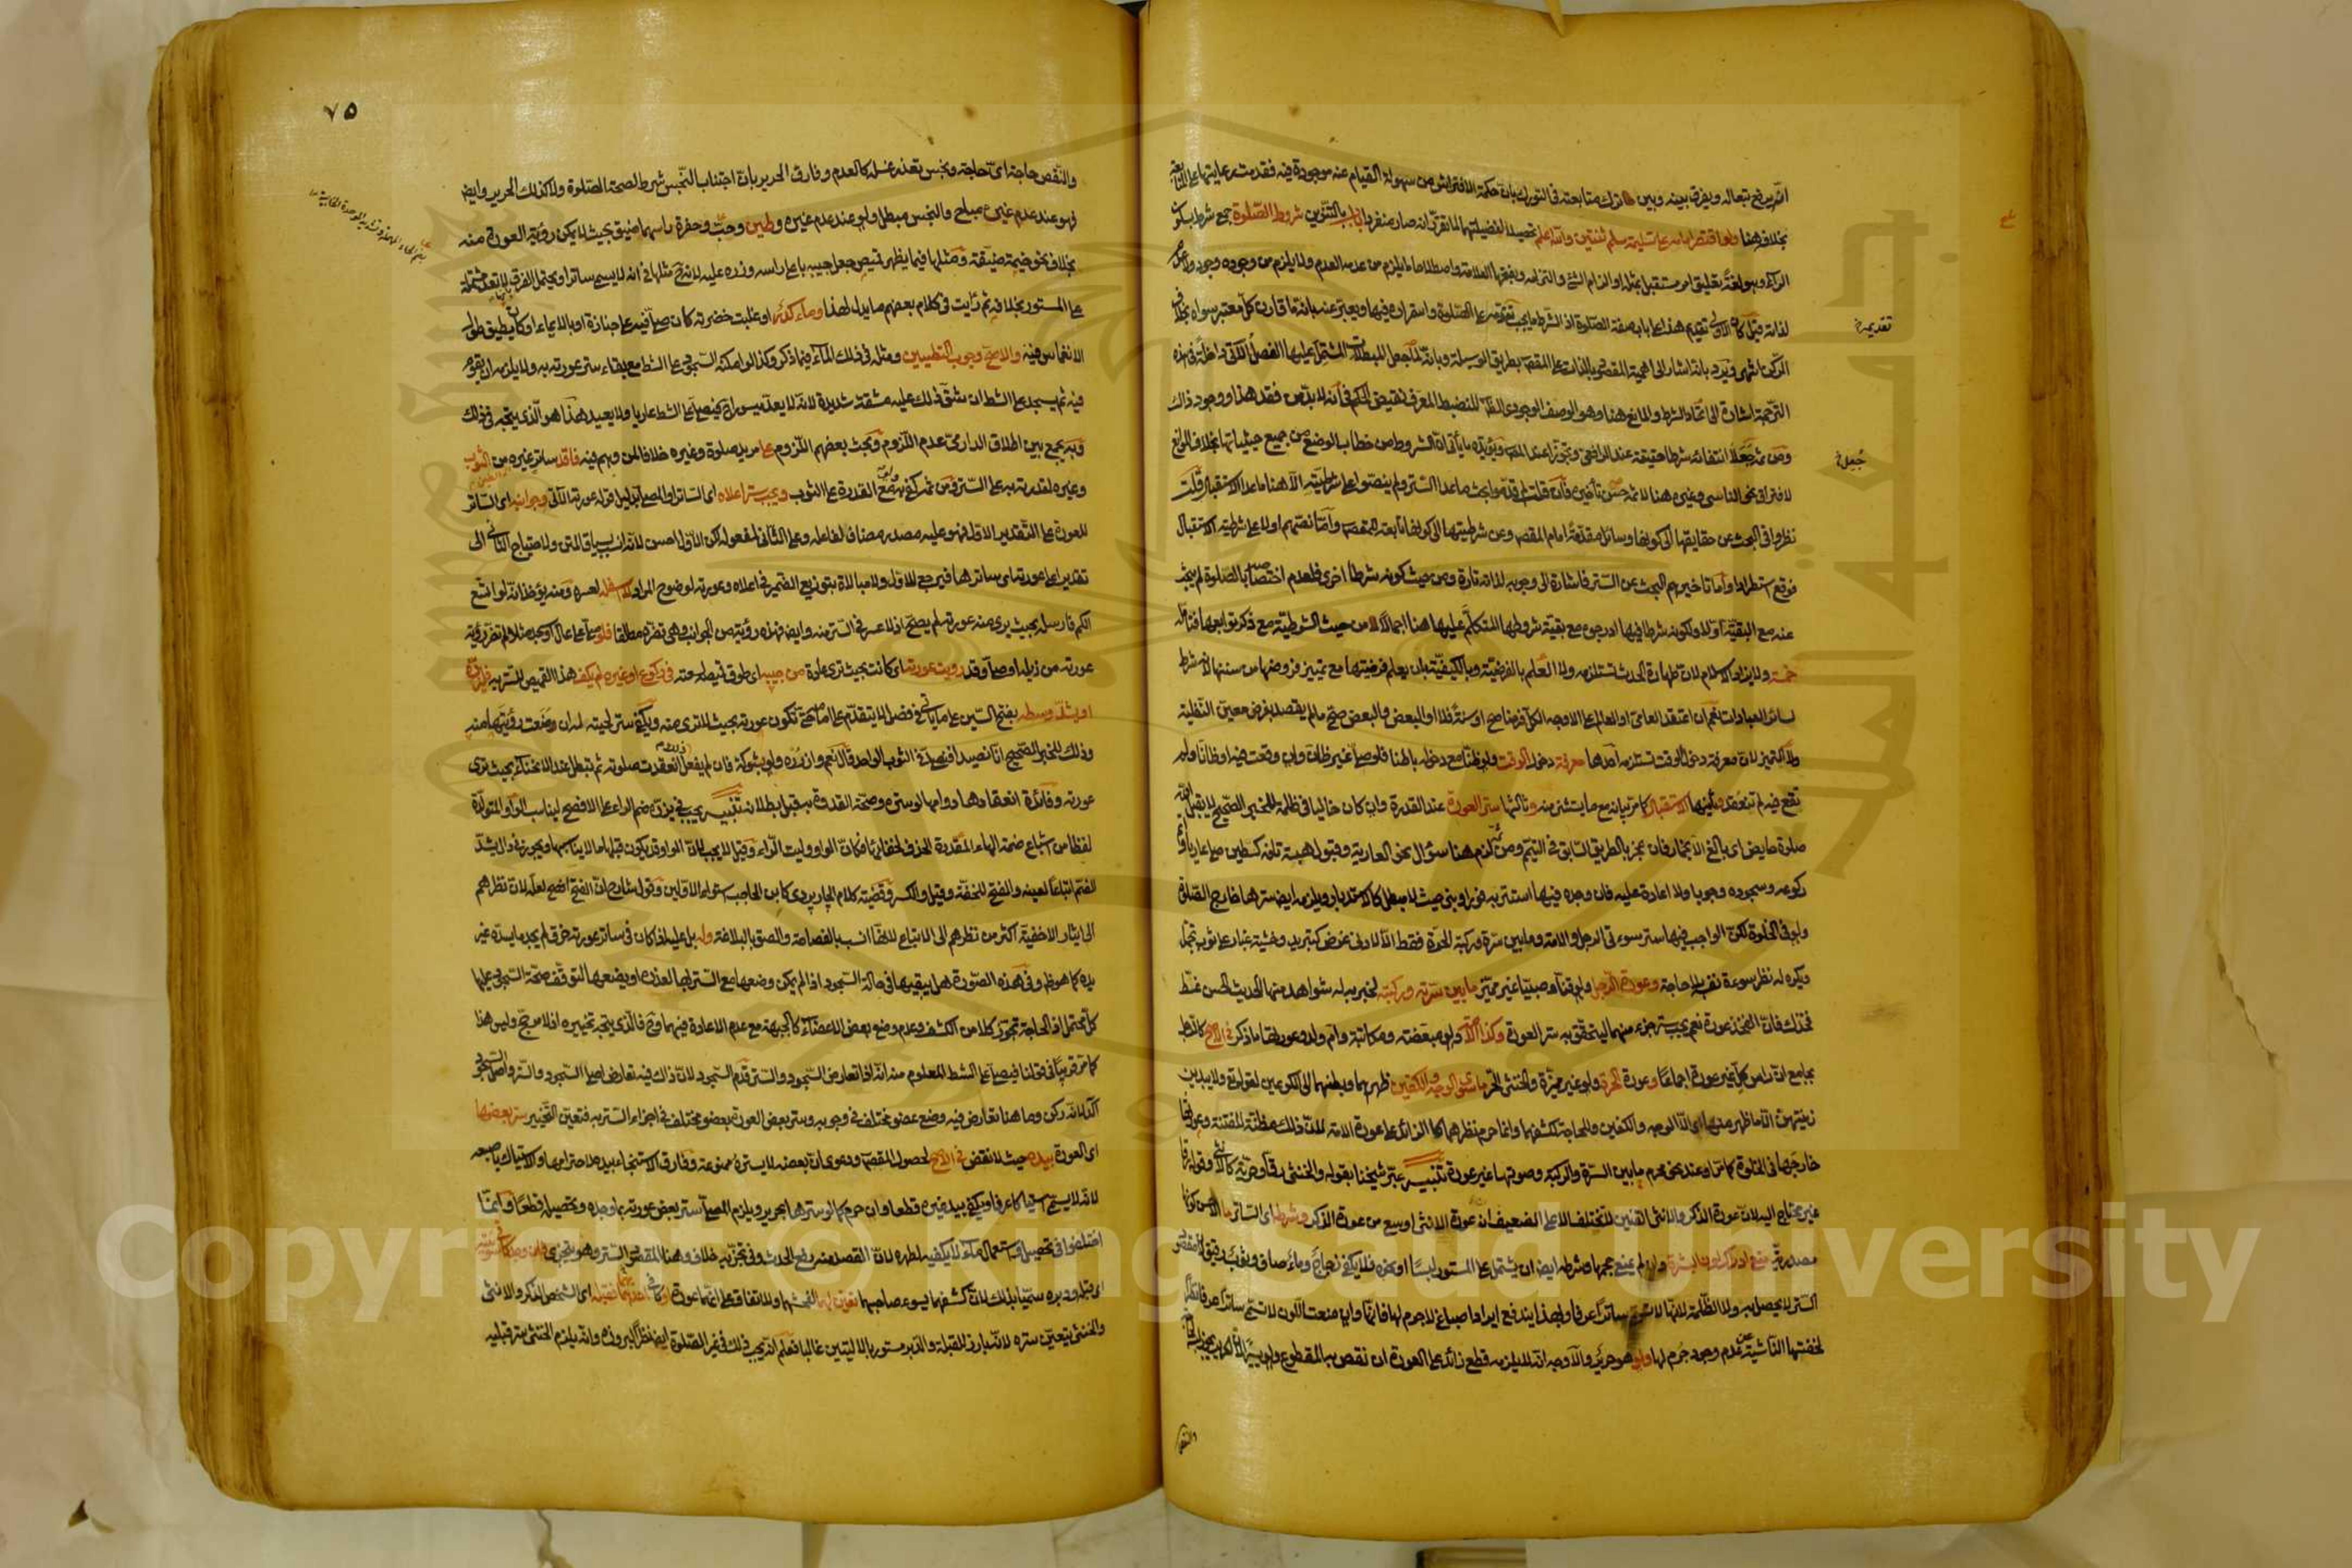 انه يرفع تبعا له ويفرق بينه وبين ترك متابعته في التورك بان حكمة الافتراش من سهولة القيام عنه موجودة فيه فقدمت رعايتها على المتابعة
بخلافه هنا ولو اقتصر امامه على تسليمة سلم ثنتين والله اعلم تحصيلا لفضيلتهما لما تقرر انه صار منفردا باب بالتنوين شروط الصلوة جمع شرط بسكون
الراء وهو لغة تعليق امر مستقبل بمثله او الزام الشئ والتزامه وبفتحها العلامة واصطلاحا ما يلزم من عدمه العدم ولا يلزم من وجوده وجود ولا عدم
لذاته قيل كان الاولى تقديم هذا على باب صفة الصلوة اذ الشرط ما يجب تقدمه على الصلوة واستمراره فيها ويعبر عنه بانه ما قارن كل معتبر سواه بخلاف
تقديمه
الركن انتهى ويرد بانه اشار الى اهمية المقصود بالذات على المقصود بطريق الوسيلة وبانه لما جعل المبطلات المشتمل عليها الفصل الآتي داخلة في هذه
الترجمة اشارة الى اتحاد الشرط والمانع هنا وهو الوصف الوجودي الظاهر المنضبط المعرف نقيض الحكم في انه لا بد من فقد هذا ووجود ذاك
ومن ثم جعلا انتفائه شرطا حقيقة عند الرافعي وتجوزا عند المص ويؤيده ما يأتي ان الشروط من خطاب الوضع من جميع حيثياتها بخلاف الموانع
جعل
لافتراق نحو الناسي وغيره هنا لا ثم حسن تأخيره فان قلت لم قدموا بحث ما عدا الستر ولم ينصوا على شرطيته الا هنا ما عدا الاستقبال قلت
نظروا في البحث عن حقايقها الى كونها وسائل مقدمة امام المقصد وعن شرطيتها الى كونها تابعة للمقصد واما نصهم اولا على شرطية الاستقبال
فوقع استطرادا واما تأخيرهم البحث عن الستر فاشارة الى وجوبه لذاته تارة ومن حيث كونه شرطا اخرى فلعدم اختصاصه بالصلوة لم يبحث
عنه مع البقية اولا ولكونه شرطا فيها ادرجوه مع بقية شروطها المتكلم عليها هنا اجمالا لا من حيث الشرطية مع ذكر توابعها فتأمله
خمسة ولا يزاد الاسلام لان طهارة الحدث تستلزمه ولا العلم بالفرضية وبالكيفية بان يعلم فرضيتها مع تمييز فروضها من سننها لانه شرط
لسائر العبادات نعم ان اعتقد العامي او العالم على الاوجه الكل فرضا صح او سنة فلا او البعض والبعض صح ما لم يقصد بفرض معين النفلية
ولا التمييز لان معرفة دخول الوقت تستلزمه احدها معرفة دخول الوقت ولو ظنا مع دخوله باطنا فلو صلى غير ظان وان وقعت فيه او ظانا ولم
تقع فيه لم تنعقد وثانيها الاستقبال كما مر بيانه مع ما يستثنى منه وثالثها ستر العورة عند القدرة وان كان خاليا في ظلمة للخبر الصحيح لا يقبل الله
صلوة حايض اي بالغ الا بخمار فان عجز بالطريق السابق في التيمم ومن ثم لزمه هنا سؤال نحو العارية وقبول هبة تافه كطين صلى عاريا واتم
ركوعه وسجوده وجوبا ولا اعادة عليه فان وجده فيها استتر به فورا وبنى حيث لا مبطل كالاستدبار ويلزمه ايضا سترها خارج الصلوة
ولو في الخلوة لكن الواجب فيها ستر سوءتي الرجل والامة وما بين سرة وركبة الحرة فقط الا لادنى غرض كتبريد وخشية غبار على ثوب تجمل
ويكره له نظر سوءة نفسه بلا حاجة وعورة الرجل ولو قنا وصبيا غير مميز ما بين سرته وركبته لخبر به له شواهد منها الحديث الحسن غط
فخذك فان الفخذ عورة نعم يجب ستر جزء منهما ليتحقق به ستر العورة وكذا الامة ولو مبعضة ومكاتبة وام ولد عورتها ما ذكر في الاصح كالرجل
بجامع ان راس كل غير عورة اجماعا وعورة الحرة ولو غير مميزة والخنثى الحر ما سوى الوجه والكفين ظهرهما وبطنهما الى الكوعين لقوله تع ولا يبدين
زينتهن الا ما ظهر منها اي الا الوجه والكفين وللحاجة لكشفهما وانما حرم نظرهما كالزائد على عورة الامة لان ذلك مظنة للفتنة وعورتها
خارجها في الخلوة كما مر وعند نحو محرم ما بين السرة والركبة وصوتها غير عورة تنبيه عبر شيخنا بقوله والخنثى رقا وحرية كالانثى وقوله رقا
غير محتاج اليه لان عورة الذكر والانثى القنين لا تختلف الا على الضعيف ان عورة الانثى اوسع من عورة الذكر وشرطه اي الساتر ما
مصدرية منع ادراك لون البشرة وان لم يمنع حجمها وشرطه ايضا ان يشتمل على المستور لبسا او نحوه فلا يكفي زجاج وماء صاف وثوب رقيق لان مقصود
الستر لا يحصل به ولا الظلمة لانها لا تسمى ساترا عرفا وبهذا يندفع ايراد اصباغ لا جرم لها فانها وان منعت اللون لا تسمى ساترا عرفا
لخفتها الناشئة عن عدم وجود جرم لها ولو هو حرير والاوجه انه لا يلزمه قطع زائد على العورة ان نقص به المقطوع ولو يسيرا
والنقص
٧٥
والنقص حاجة اي حاجة ونجس تعذر غسله كالعدم وفارق الحرير بان اجتناب النجس شرط لصحة الصلوة ولا كذلك الحرير وايضا
فهو عند عدم غيره مباح والنجس مبطل ولو عند عدم غيره وطين وحب وحفرة راسهما ضيق بحيث لا يمكن رؤية العورة منه
بخلاف نحو خيمة ضيقة ومثلها فيما يظهر قميص جعل جيبه باعلى راسه وزره عليه لانه ح مثلها في انه لا يسمى ساترا ويحتمل الفرق بانها لا تعد مشتملة
على المستور بخلافه ثم رأيت في كلام بعضهم ما يدل لهذا وماء كدر او غلبت خضرته كأن صلى فيه على جنازة او بالايماء او كان يطيق طول
الانغماس فيه والاصح وجوب التطيين ومثله في ذلك الماء فيما ذكر وكذا لو امكنه السجود على الشط مع بقاء ستر عورته به ولا يلزمه ان يقوم
فيه ثم يسجد على الشط ان شق ذلك عليه مشقة شديدة لانه لا يعد ميسورا ح فيصلي على الشط عاريا ولا يعيد هذا هو الذي يتجه في ذلك
وبه يجمع بين اطلاق الدارمي عدم اللزوم وبحث بعضهم اللزوم على مريد صلوة وغيره خلافا لمن وهم فيه فاقد ساتر غيره من الثوب
وغيره لقدرته به على الستر ومن ثم كفى به مع القدرة على الثوب ويجب ستر اعلاه اي الساتر او المصلي بدليل قوله عورته الآتي وجوانبه اي الساتر
للعورة على التقدير الاول فهو عليه مصدر مضاف لفاعله وعلى الثاني لمفعوله لكن الاول احسن لانه انسب بسياق المتن ولاحتياج الثاني الى
تقدير اعلى عورته اي ساترها فيرجع للاول ولا مبالاة بتوزيع الضمير في اعلاه وعورته لوضوح المراد لا اسفله لعسره ومنه يؤخذ انه لو اتسع
الكم فارسله بحيث يرى منه عورته لم يصح اذ لا عسر في الستر منه وايضا فهذه رؤية من الجوانب وهي تضر مطلقا فلو صلى على عال او سجد مثلا لم تضر رؤية
عورته من ذيله او صلى وقد رؤيت عورته اي كانت بحيث ترى عادة من جيبه اي طوق قميصه لسعته في ركوع او غيره لم يكف هذا القميص للستر به فليزره
او يشد وسطه بفتح السين على ما يأتي في فصل لا يتقدم على امامه حتى تكون عورته بحيث لا ترى منه ويكفي ستر لحيته له ان منعت رؤيتها منه
وذلك للخبر الصحيح انا نصيد افنصلي في الثوب الواحد قال نعم وازرره ولو بشوكة فان لم يفعل ذلك انعقدت صلوته ثم تبطل عند الانحناء بحيث ترى
عورته وفائدة انعقادها دوامها لو ستره وصحة القدوة به قبل بطلانه تنبيه يجب في يزره ضم الراء على الافصح ليناسب الواو المتولدة
لفظا من اشباع ضمة الهاء المقدرة الحذف لخفائها فكان الواو وليت الراء وقيل لا يجب لان الواو قد يكون قبلها ما لا يناسبها ويجوز في دال يشد
الضم اتباعا لعينه والفتح للخفة وقيل والكسر وقضية كلام الجاربردي كابن الحاجب استواء الاولين وقول شارح ان الفتح افصح لعله لان نظرهم
الى ايثار الاخفية اكثر من نظرهم الى الاتباع لانها انسب بالفصاحة والصق بالبلاغة وله بل عليه اذا كان في ساتر عورته خرق لم يجد ما يسده غير
يده كما هو ظاهر وفي هذه الصورة هل يبقيها في حالة السجود اذا لم يمكن وضعها مع الستر بها لعذره او يضعها لتوقف صحة السجود عليها
كل محتمل اذ الحاجة تجوز كلا من الكشف وعدم وضع بعض الاعضاء كالجبهة مع عدم الاعادة فيهما وح فالذي يتجه تخييره اذ لا مرجح وليس هذا
كما مر قريبا في قولنا فيصلي على الشط المعلوم منه انه اذا تعارض السجود والستر قدم السجود لان ذلك فيه تعارض اصل السجود والستر واصل السجود
آكد لانه ركن وما هنا تعارض فيه وضع عضو مختلف في وجوبه وستر بعض العورة بعضو مختلف في اجزاء الستر به فتعين التخيير ستر بعضها
اي العورة بيده حيث لا نقض في الاصح لحصول المقصود ودعوى ان بعضه لا يستره ممنوعة وفارق الاستنجاء بيده لاحترامها والاستياك باصبعه
لانه لا يسمى استياكا عرفا ويكفي بيد غيره قطعا وان حرم كما لو سترها بحرير ويلزم المصلي ستر بعض عورته بما وجده وتحصيله قطعا وانما
اختلفوا في تحصيل واستعمال ماء لا يكفيه لطهره لان القصد منه رفع الحدث وفي تجزيه خلاف وهنا المقصود الستر وهو يتجزى فان وجد كافي سوءتيه
اي قبله ودبره سميا بذلك لان كشفهما يسوء صاحبهما تعين لهما لفحشهما وللاتفاق على انهما عورة او كافي احدهما فقبله اي الشخص الذكر والانثى
والخنثى يتعين ستره لانه بارز للقبلة والدبر مستور بالاليتين غالبا فعلم انه يجب ذلك في غير الصلوة ايضا نظرا لبروزه وانه يلزم الخنثى ستر قبليه
Copyright © King Saud University